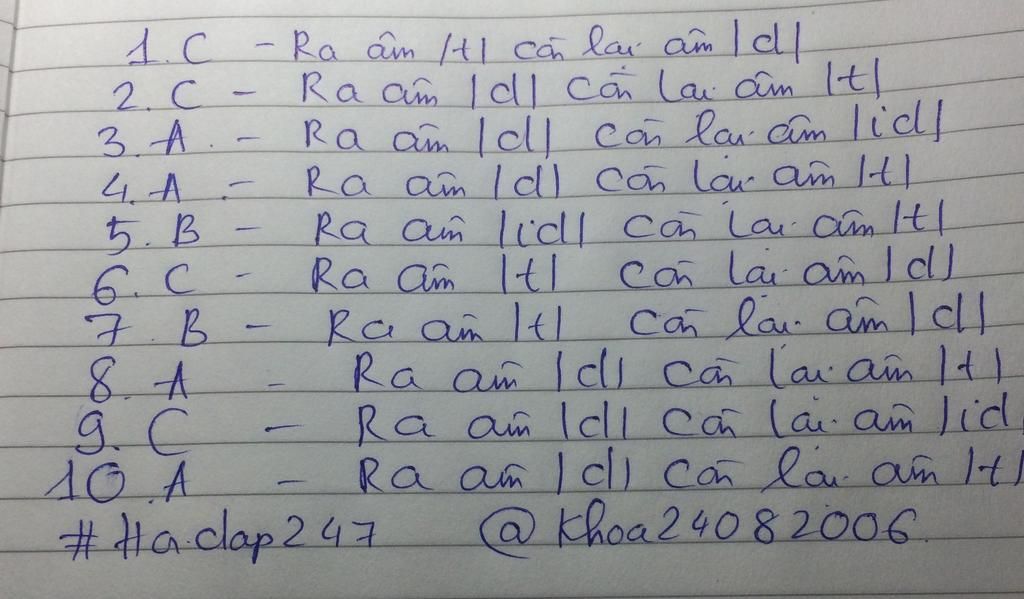 1. C - Ra âm |t| còn lại âm |d|
2. C - Ra âm |d| còn lại âm |t|
3. A. - Ra âm |d| còn lại âm |id|
4. A - Ra âm |d| còn lại âm |t|
5. B - Ra âm |id| còn lại âm |t|
6. C - Ra âm |t| còn lại âm |d|
7. B - Ra âm |t| còn lại âm |d|
8. A - Ra âm |d| còn lại âm |t|
9. C - Ra âm |d| còn lại âm |id
10. A - Ra âm |d| còn lại âm |t|
#Hạ.dap247 @Khoa24082006.